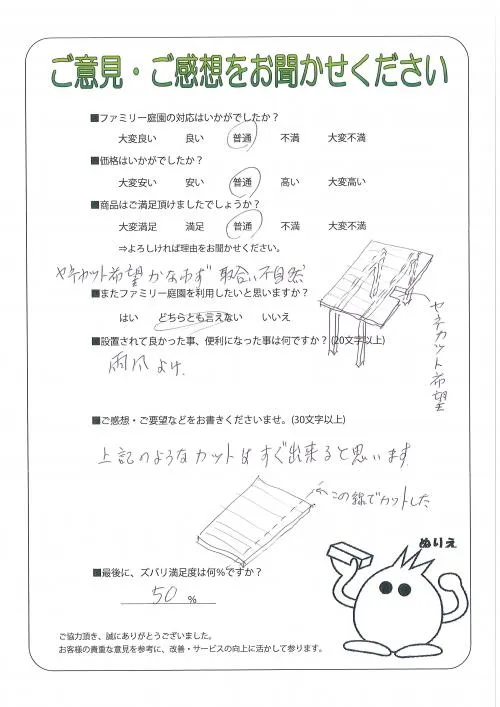 ご意見・ご感想をお聞かせください
■ファミリー庭園の対応はいかがでしたか？
大変良い 良い 普通 不満 大変不満
■価格はいかがでしたか？
大変安い 安い 普通 高い 大変高い
■商品はご満足頂けましたでしょうか？
大変満足 満足 普通 不満 大変不満
⇒よろしければ理由をお聞かせください。
カット希望かなわず 取合い不自然
■またファミリー庭園を利用したいと思いますか？
はい どちらとも言えない いいえ
カット希望
■設置されて良かった事、便利になった事は何ですか？(20文字以上)
雨風よけ
■ご感想・ご要望などをお書きくださいませ。(30文字以上)
上記のようなカットはすぐ出来ると思います
この線でカットした
ぬりえ
■最後に、ズバリ満足度は何%ですか？
50 %
ご協力頂き、誠にありがとうございました。
お客様の貴重な意見を参考に、改善・サービスの向上に活かして参ります。